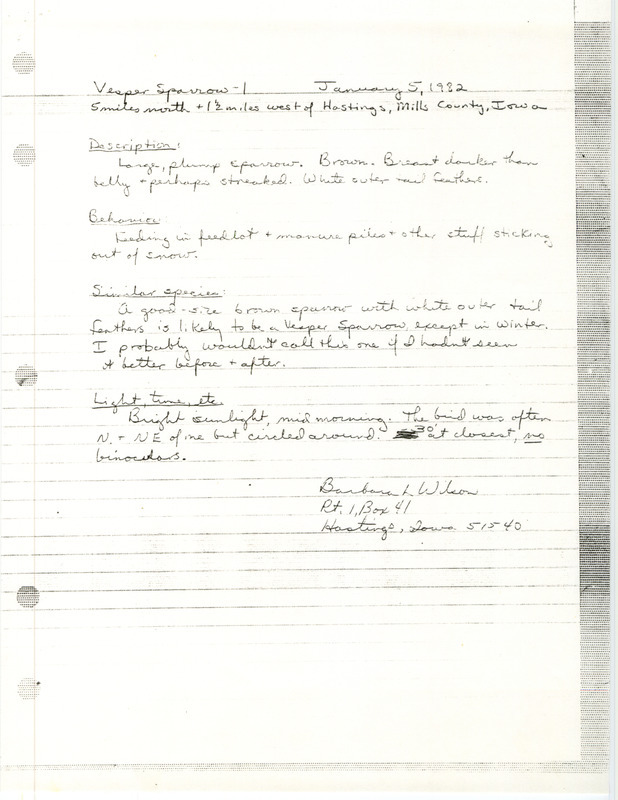 Vesper Sparrow - 1 January 5, 1982
5 miles north + 1 1/2 miles west of Hastings, Mills County, Iowa
Description:
Large, plump sparrow. Brown. Breast darker than
belly + perhaps streaked. White outer tail feathers.
Behavior:
Feeding in feedlot + manure piles + other stuff sticking
out of snow.
Similar species:
A good-size brown sparrow with white outer tail
feathers is likely to be a Vesper Sparrow, except in winter.
I probably wouldn't call this one if I hadn't seen
it better before + after.
Light, time, etc.
Bright sunlight, mid morning. The bird was often
N. + NE of me but circled around. 30' at closest, no
binoculars.
Barbara L Wilson
Rt. 1, Box 41
Hastings, Iowa 51540